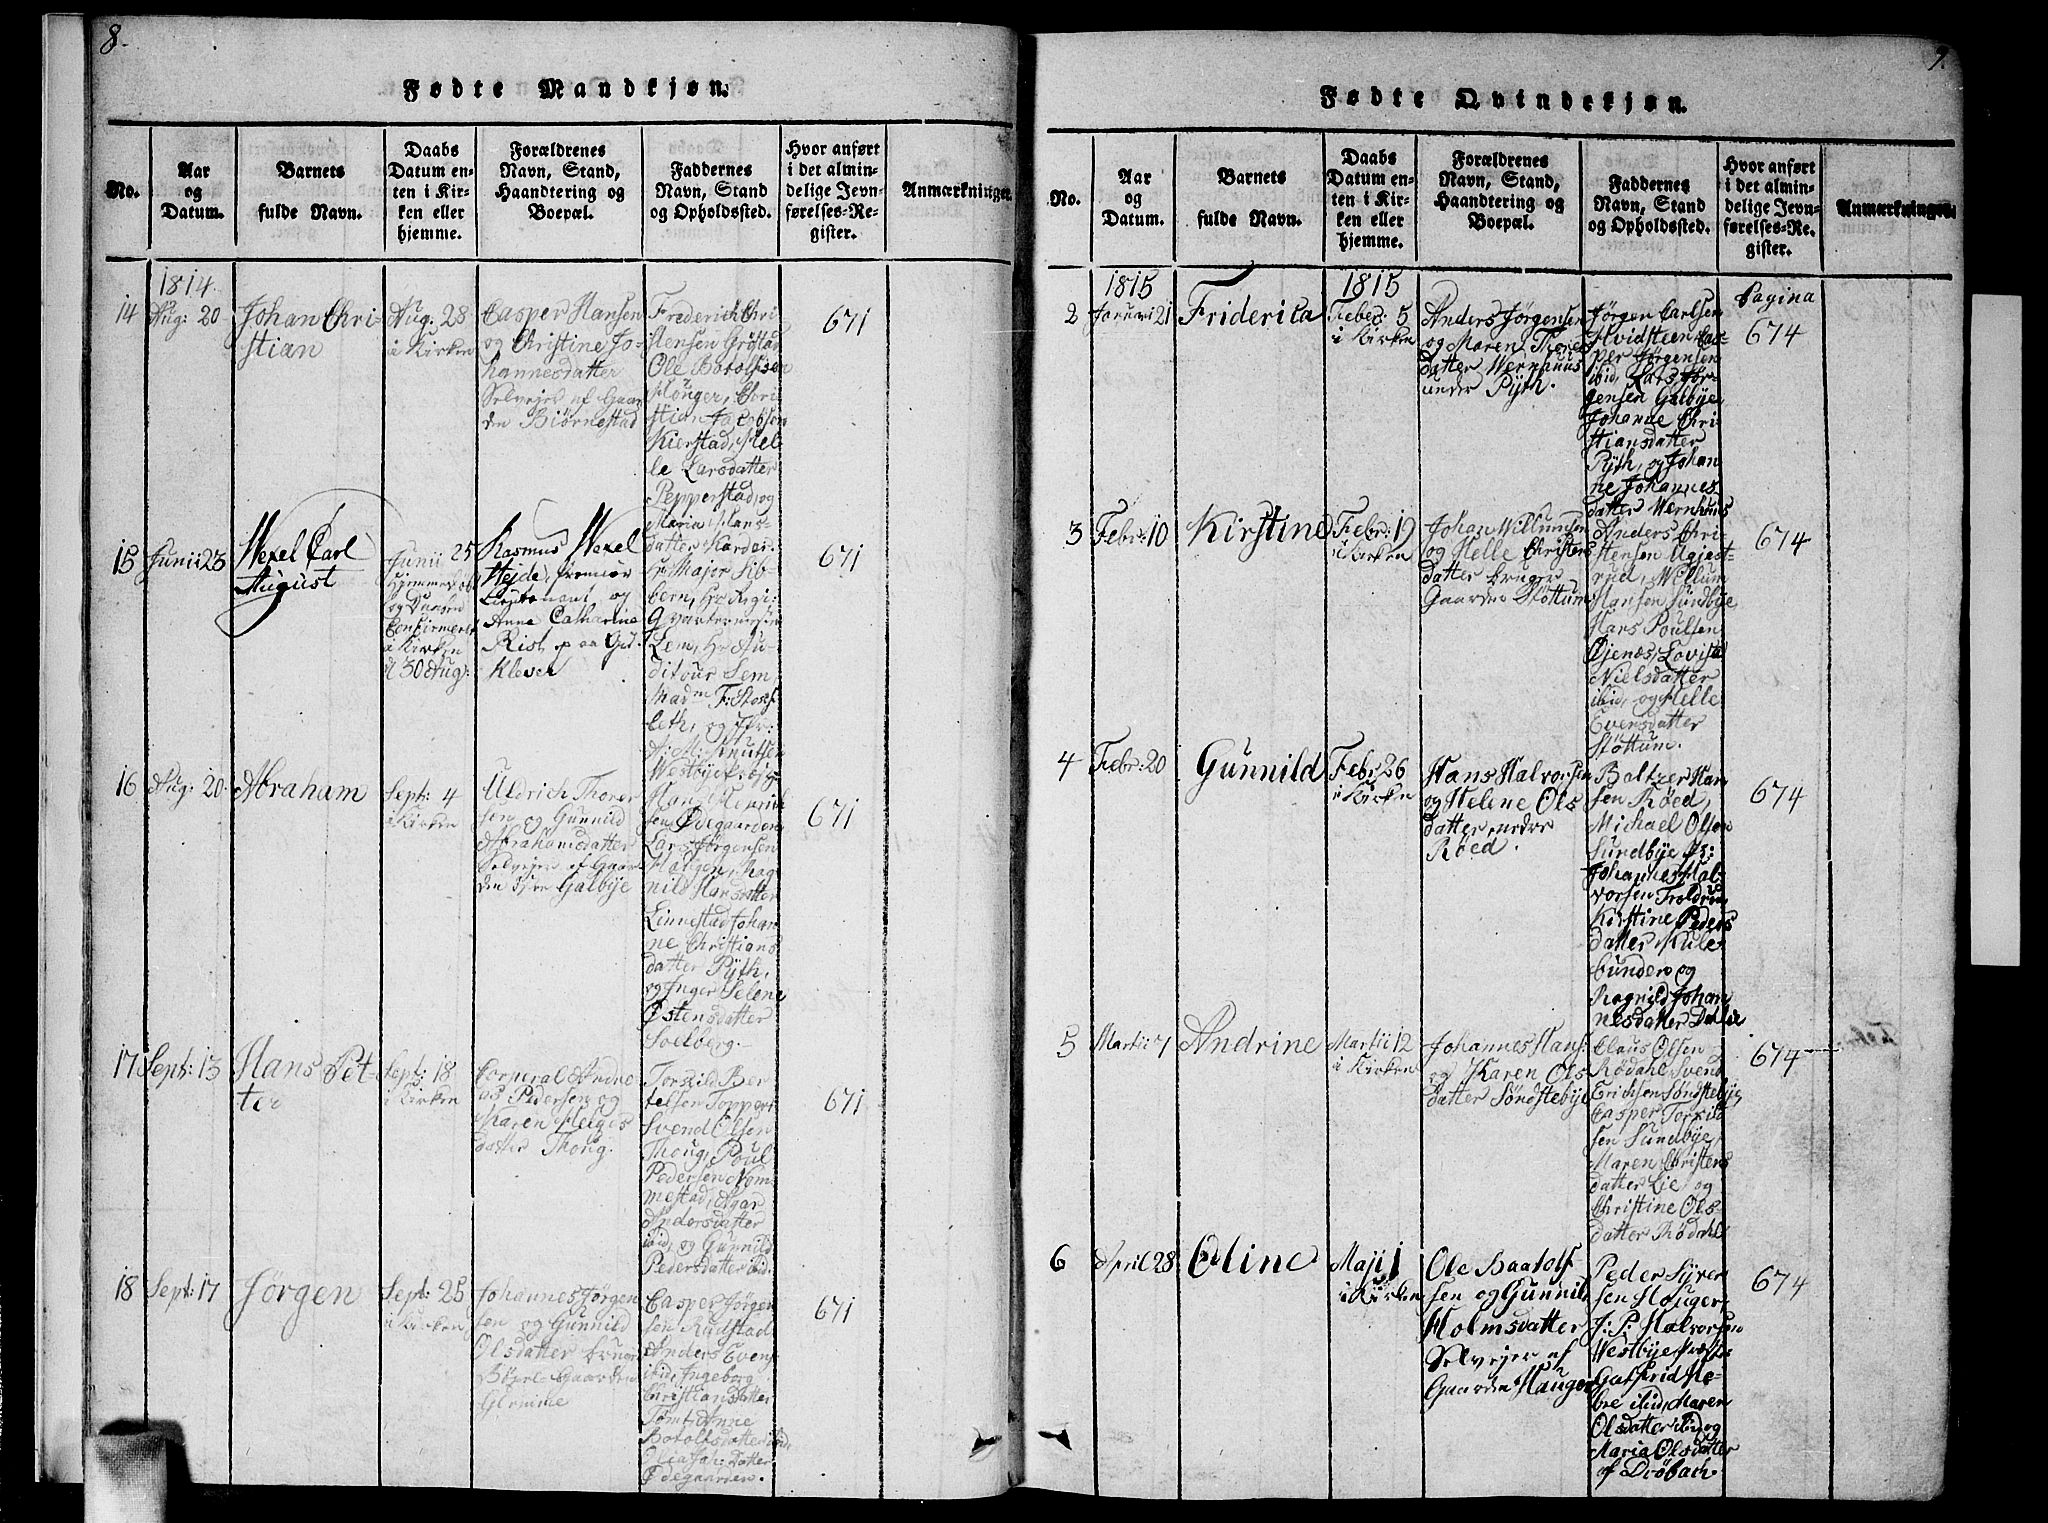 8.
Fødte Mandkjøn.
No.
Aar
og
Datum.
Barnets
fulde Navn.
Daabs
Datum en-
ten i Kir-
ken eller
hjemme.
Forældrenes
Navn, Stand,
Haandtering og
Boepæl.
Faddernes
Navn, Stand
og Opholdssted.
Hvor anført
i det almin-
delige Jevn-
førelses-Re-
gister.
Anmærkninger.
1814.
14
Aug: 20
Johan Chri-
stian
Aug. 28
i Kirken
Casper Hansen
og Christine Jo-
hannesdatter
Selvejer af Gaar
den Biørnestad
Friderich Chri
stensen Grøstad
Ole Botolfsen
Hønger, Chri
stian Jacobsen
Kierstad, Hel-
le Larsdatter
Pepperstad, og
Maria Hans-
datter
671
15
Junii 23
Wexel Carl
August
Junii 25
Hjemmedøbt
og Daaben
Confirmeret
i Kirken
d 30 Aug:
Rasmus Wexel
Hejde, Premier
Lieutenant og
Anne Catharine
Rist, paa Gid-
klever
Hr Major Sib-
bern, Hr Regi-
Qvartermester
Lem, Hr Au-
ditour Lem,
Madm F: Stock
fleth, og Hr:
J: M: Knutsen
Westbye
671
16
Aug: 20.
Abraham
Sept: 4
i Kirken
Uldrich Thorer
sen og Gunnild
Abrahamsdatter
Selvejer af Gaar
den Galbye
Hans Henrich
sen Ødegaarden
Lars Jørgensen
Haugen, Rag
nild Hansdatter
Linnestad Johan
ne Christians
datter Pÿth,
og Inger Helene
Østensdatter
Solberg.
671
17
Sept: 13
Hans Pet-
ter
Sept: 18
i Kirken
Corporal Andre
as Pedersen og
Karen Helges
datter Thoug.
Torkild Ber
telsen Topper
Svend Olsen
Thoug, Poul
Pedersen Nom
mestad,
Andersdatter
ibid, og Gunnild
Pedersdatter ibid.
671
18
Sept: 17
Jørgen
Sept: 25
i Kirken
Johannes Jørgen
sen og Gunnild
Olsdatter bruger
Gaarden
Glemme
Casper Jørgen
sen Rudstad
Anders Evens
ibid, Ingeborg
Christiansdatter
Tomt, Anne
Botolfsdatter ibid,
Datter
Ødegaarden.
671
9.
Fødte Qvindekjøn.
No.
Aar
og
Datum.
Barnets
fulde Navn.
Daabs
Datum en-
ten i Kir-
ken eller
hjemme.
Forældrenes
Navn, Stand,
Haandtering og
Boepæl.
Faddernes
Navn, Stand
og Opholdssted.
Hvor anført
i det almin-
delige Jevn-
førelses-Re-
gister.
Anmærkninger.
1815
1815
Pagina
2
Januari 21
Friderica
Febr: 5
i Kirken
Anders Jørgensen
og Maren Thores
datter Wernhuus
under Pÿth.
Jørgen Carlsen
Hvidsteen Cas-
per Jørgensen
ibid, Lars Jør-
gensen Galbye
Johanne Chri-
stiansdatter
Pÿth, og Johan
ne Johannes-
datter Wernhuus
674
3
Febr: 10
Kirstine
Febr: 19
i Kirken
Johan Willumsen
og Helle Christens
datter bruger
Gaarden Støttum
Anders Chri-
stensen Ugjest-
rud, Willum
Hansen Sundbye
Hans Poulsen
Øjenæs, Lovisa
Nielsdatter
ibid, og Helle
Evensdatter
Støttum.
674
4
Febr: 20
Gunnild
Febr: 26
i Kirken
Hans Halvorsen
og Helene Ols
datter, nedre
Røed.
Baltzer Han
sen Røed,
Michael Olsen
Sundbye
Johannes Hal-
vorsen Troldrud
Kirstine Peders
datter Kule
bunden og
Ragnild Johan
nesdatter
674
5
Martii 7
Andrine
Martii 12
i Kirken
Johannes Hans:
og Karen Ols
datter Søndstebye
Claus Olsen
Rødahl, Svend
Erichsen Søndstebye,
Casper Torkild
sen Sundbye,
Maren Christens
datter Lie og
Christine Ols
datter Rødahl
674
6
April 28
Oline
Maji 1
i Kirken
Ole Baatolf
sen og Gunnild
Holmsdatter
Selvejer af
Gaarden Hauger
Peder Syver
sen Hauger
J: P: Halvorsen
Westbye Præste-
Gaard
ibid, Maren
Olsdatter ibid og
Maria Olsdatter
af Drøbach.
674